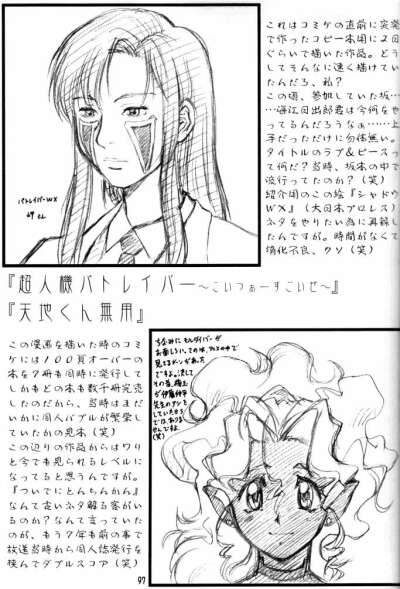 これはコミケの直前に突発
で作ったコピー本用に2日
ぐらいで描いた作品。どう
してそんなに速く描けてい
たんだろ、私?
この頃、参加していた坂…
…海江田出部君は今何をや
ってるんだろうなぁ……上
手だっただけに勿体無い。
タイトルのラブ&ピースっ
て何だ?当時、坂本の中で
流行ってたのか?(笑)
紹介用のこの絵『シャドウ
WX』(大日本プロレス)
ネタをやりたい為に再録し
たんですが。時間がなくて
消化不良、クソ(笑)
バトレイバーWX
『超人機バトレイバー〜こいつぁーすごいぜ〜』
『天地くん無用』
この漫画を描いた時のコミ
ケには100頁オーバーの
本を7冊も同時に発行して
しかもどの本も数千冊完売
したのだから、当時はまだ
いかに同人バブルが繁栄し
ていたかの見本(笑)
この辺りの作品からはワリ
と今でも見られるレベルに
なってると思うんですが。
『ついでにとんちんかん』
なんて古いネタ解る客がい
るのか?なんて言っていた
のが、もう7年も前の事で
放送当時から同人誌発行を
挟んでダブルスコア(笑)
97